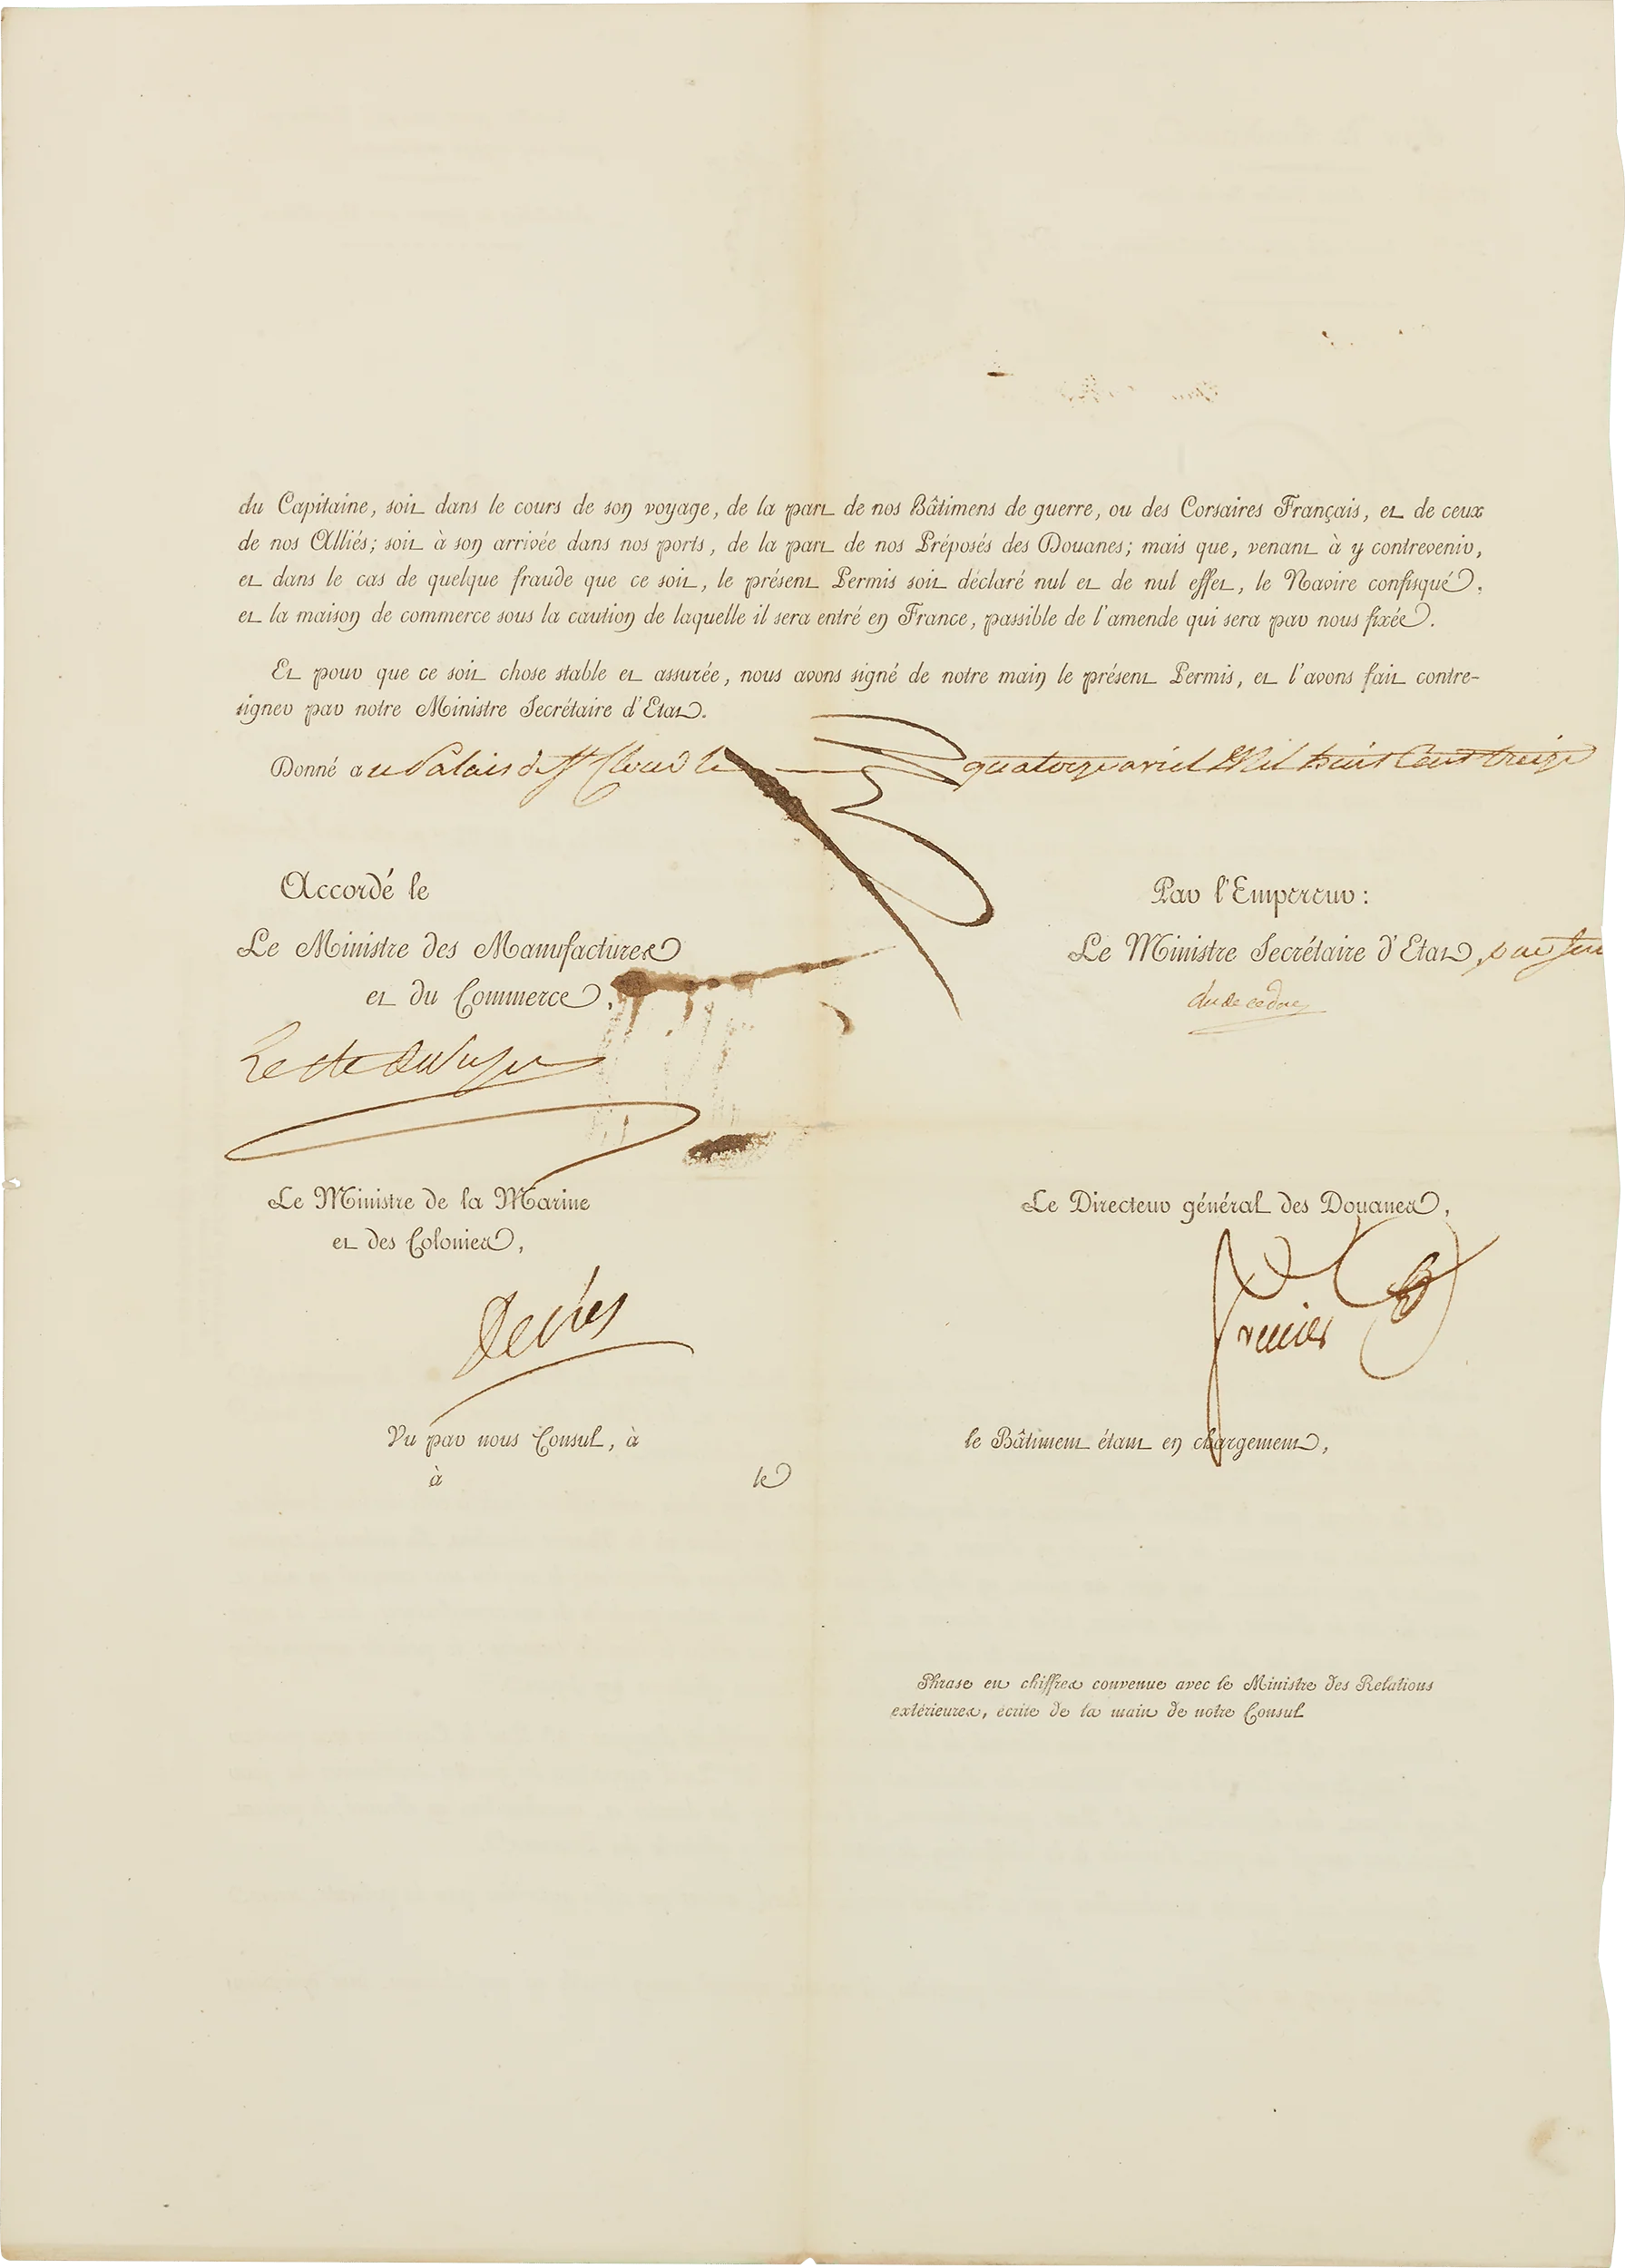 du Capitaine, soit dans le cours de son voyage, de la part de nos Bâtimens de guerre, ou des Corsaires Français, et de ceux
de nos Alliés; soit à son arrivée dans nos ports, de la part de nos Préposés des Douanes; mais que, venant à y contrevenir,
et dans le cas de quelque fraude que ce soit, le présent Permis soit déclaré nul et de nul effet, le Navire confisqué,
et la maison de commerce sous la caution de laquelle il sera entré en France, passible de l'amende qui sera par nous fixée.
Et pour que ce soit chose stable et assurée, nous avons signé de notre main le présent Permis, et l'avons fait contre-
signer par notre Ministre Secrétaire d'Etat.
Donné au Palais de St Cloud le quatorze avril Mil huit Cent treize
Accordé le
Par l'Empereur:
Le Ministre des Manufactures
et du Commerce,
Le Ministre Secrétaire d'Etat, par
Le Ministre de la Marine
et des Colonies,
Le Directeur général des Douanes,
Decrès
Vu par nous Consul, à
le Bâtiment étant en chargement,
à le
Phrase en chiffres convenue avec le Ministre des Relations
extérieures, écrite de la main de notre Consul